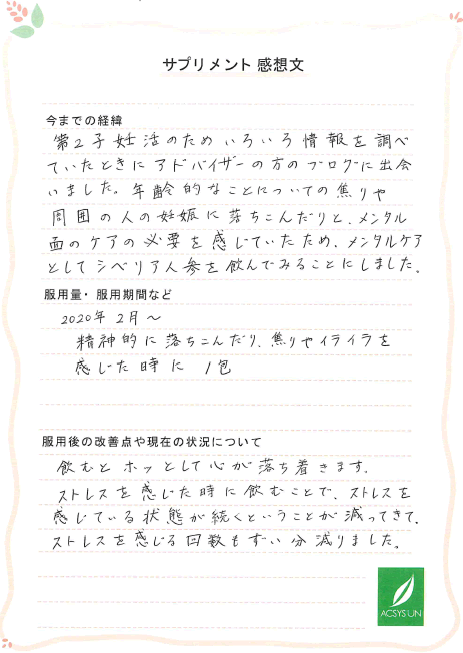 サプリメント 感想文
今までの経緯
第2子妊活のためいろいろ情報を調べ
ていたときにアドバイザーの方のブログに出会
いました。年齢的なことについての焦りや
周囲の人の妊娠に落ちこんだりと、メンタル
面のケアの必要を感じていたため、メンタルケア
としてシベリア人参を飲んでみることにしました。
服用量・服用期間など
2020年2月〜
精神的に落ちこんだり、焦りやイライラを
感じた時に 1包
服用後の改善点や現在の状況について
飲むとホッとして心が落ち着きます。
ストレスを感じた時に飲むことで、ストレスを
感じている状態が続くということが減ってきて、
ストレスを感じる回数もずい分減りました。
ACSYSUN